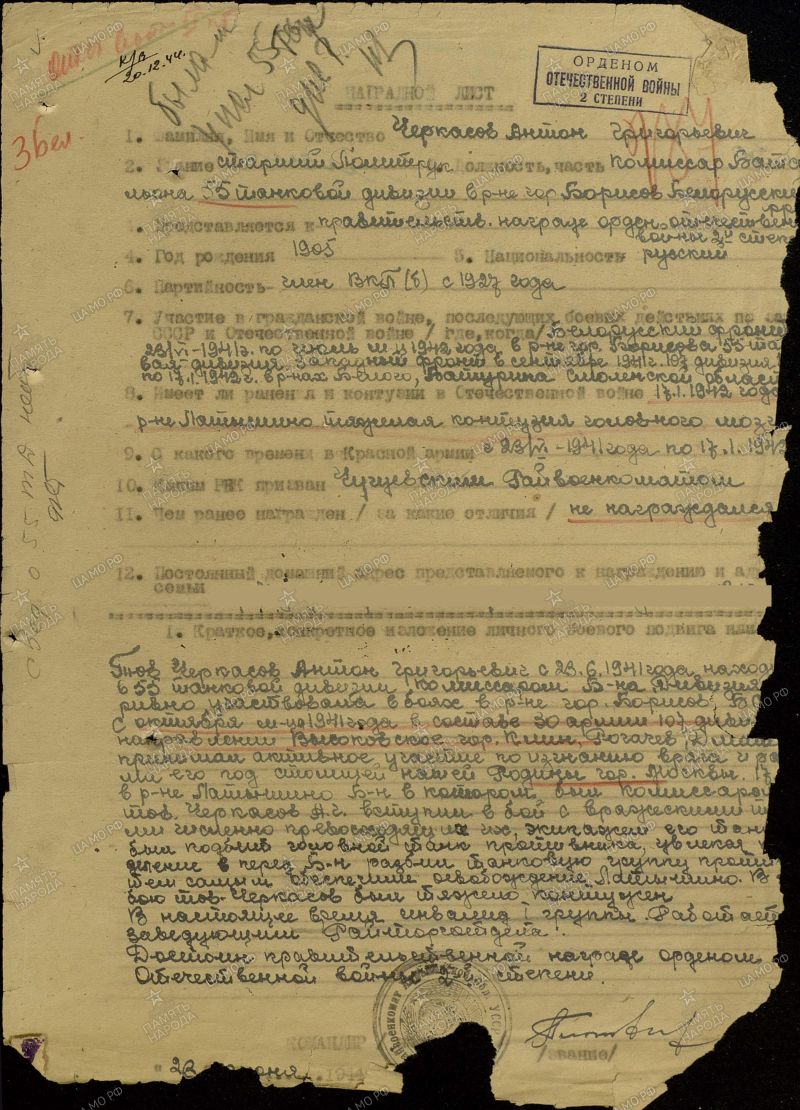 К/В
20.12.44.
была ли
55
3 бел.
ОРДЕНОМ
ОТЕЧЕСТВЕННОЙ ВОЙНЫ
2 СТЕПЕНИ
НАГРАДНОЙ ЛИСТ
1. Фамилия, Имя и Отчество Черкасов Антон Григорьевич
2. Звание старший Политрук Должность, часть комиссар Бата
льона 55 танковой дивизии в р-не гор. Борисов Белорусский
фр
3. Представляется к правительств. награде орден отечествен
войны 2й степе
4. Год рождения 1905 5. Национальность русский
6. Партийность член ВКП(б) с 1927 года
7. Участие в гражданской войне, последующих боевых действиях по за
СССР и Отечественной войне / где, когда / Белорусский фронт
23/VI-1941г. по июль м-ц 1942 года в р-не гор. Борисова 55 та
вая дивизия Западный фронт в сентябре 1941г. 107 дивизия
по 17.1.1942г. в р-нах Белого, Батурина Смоленской област
8. Имеет ли ранения и контузии в Отечественной войне 17.1.1942 года
р-не Латышино тяжелая контузия головного мозг
9. С какого времени в Красной армии с 23/VI-1941 года по 17.1.1942
10. Каким РВК призван Чугуевским Райвоенкоматом
11. Чем ранее награжден / за какие отличия / не награждался
12. Постоянный домашний адрес представляемого к награждению и ад
семьи
1. Краткое, конкретное изложение личного боевого подвига или
Тов. Черкасов Антон Григорьевич с 23.6.1941 года наход
в 55 танковой дивизии комиссаром Б-на дивизия
рывно участвовала в боях в р-не гор. Борисов,
С октября м-ца 1941 года в составе 30 армии 107 диви
направлении Высоковское гор. Клин, Рогачев, Дмит
принимал активное участие по изгнанию врага и ра
ли его под столицей нашей Родины гор. Москвы. 17
в р-не Латышино Б-н в котором был комиссаро
тов. Черкасов А.Г. вступил в бой с вражескими
ми численно превосходящих нас, экипажем его тан
был подбит головной танк противника, увлекая
дение в перед Б-н разбил танковую группу проти
тем самым обеспечил освобождение Латышино. В
бою тов. Черкасов был тяжело контужен
В настоящее время инвалид 1 группы. Работает
заведующим Райторготдела.
Достоин правительственной награде орденом
Отечественной войны 2й степени.
КОМАНДИР
/звание/
"23 июня 1944
с вед о 55 тд нет